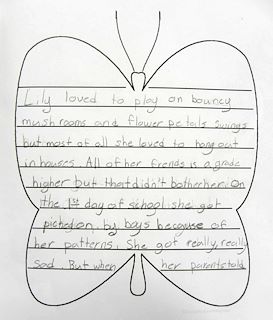 Lily loved to play on bouncy
mushrooms and flower petals swings
but most of all she loved to hang out
in houses. All of her frends is a grade
higher but that didn't bother her. On
the 1st day of school she got
picked on by boys because of
her patterns. She got really, really
sad. But when her parents told